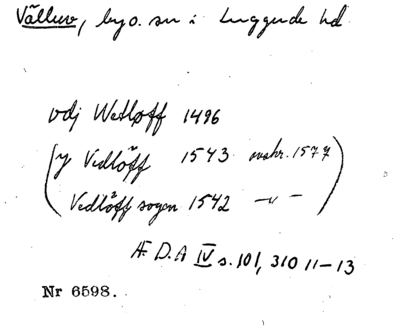 Välluv, by o. sn i Luggude hd
vdj Wetløff 1496
(y Vedløff 1543 avskr. 1577)
(Vedløff sogen 1542 —"—)
Æ. D. A IV s. 101, 310 11–13
Nr 6598.